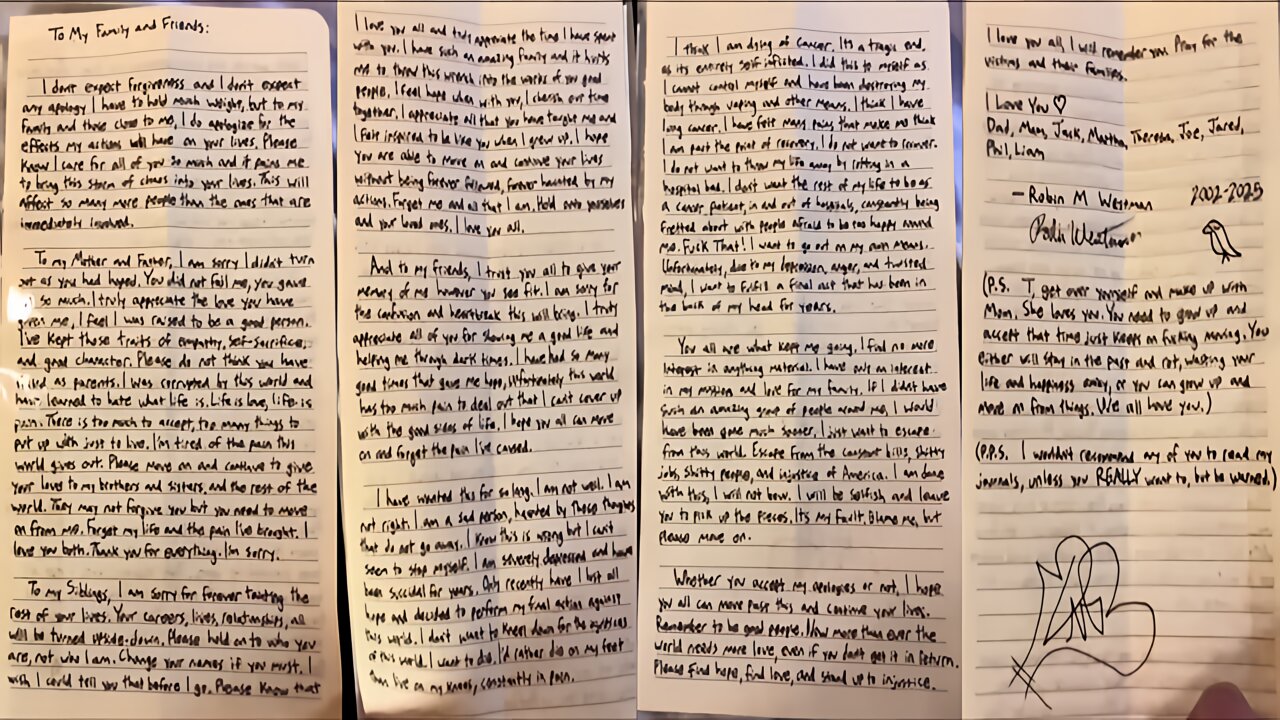 To My Family and Friends:
I don't expect forgiveness and I don't expect
any apology I have to hold much weight, but to my
family and those close to me, I do apologize for the
effects my actions will have on your lives. Please
know I care for all of you so much and it pains me
to bring this storm of chaos into your lives. This will
affect so many more people than the ones that are
immediately involved.
To my Mother and Father, I am sorry I didn't turn
out as you had hoped. You did not fail me, you gave
so much. I truly appreciate the love you have
given me, I feel I was raised to be a good person.
I've kept those traits of empathy, self-sacrifice,
and good character. Please do not think you have
failed as parents. I was corrupted by this world and
have learned to hate what life is. Life is love, life is
pain. There is too much to accept, too many things to
put up with just to live. I'm tired of the pain this
world gives out. Please move on and continue to give
your love to my brothers and sisters, and the rest of the
world. They may not forgive you but you need to move
on from me. Forget my life and the pain I've brought. I
love you both. Thank you for everything. I'm sorry.
To my Siblings, I am sorry for forever tainting the
rest of your lives. Your careers, lives, relationships, all
will be turned upside-down. Please hold on to who you
are, not who I am. Change your names if you must. I
wish I could tell you that before I go. Please know that
I love you all and truly appreciate the time I have spent
with you. I have such an amazing family and it hurts
me to throw this wrench into the works of you good
people. I feel hope when with you, I cherish our time
together. I appreciate all that you have taught me and
I felt inspired to be like you when I grew up. I hope
you are able to move on and continue your lives
without being forever followed, forever haunted by my
actions. Forget me and all that I am. Hold onto yourselves
and your loved ones. I love you all.
And to my friends, I trust you all to give your
memory of me however you see fit. I am sorry for
the confusion and heartbreak this will bring. I truly
appreciate all of you for showing me a good life and
helping me through dark times. I have had so many
good times that gave me hope, unfortunately this world
has too much pain to deal out that I can't cover up
with the good sides of life. I hope you all can move
on and forget the pain I've caused.
I have wanted this for so long. I am not well. I am
not right. I am a sad person, haunted by these thoughts
that do not go away. I know this is wrong but I can't
seem to stop myself. I am severely depressed and have
been suicidal for years. Only recently have I lost all
hope and decided to perform my final action against
this world. I don't want to kneel down for the injustices
of this world. I want to die. I'd rather die on my feet
than live on my knees, constantly in pain.
I think I am dying of cancer. It's a tragic end,
as its entirely self inflicted. I did this to myself as
I cannot control myself and have been destroying my
body through vaping and other means. I think I have
lung cancer. I have felt many pains that make me think
I am past the point of recovery. I do not want to recover.
I do not want to throw my life away by rotting in a
hospital bed. I don't want the rest of my life to be as
a cancer patient, in and out of hospitals, constantly being
fretted about with people afraid to be too happy around
me. Fuck That! I want to go out on my own means.
Unfortunately, due to my depression, anger, and twisted
mind, I want to fulfill a final act that has been in
the back of my head for years.
You all are what kept me going. I find no more
interest in anything material. I have only an interest
in my mission and love for my family. If I didn't have
such an amazing group of people around me, I would
have been gone much sooner. I just want to escape
from this world. Escape from the constant bills, shitty
jobs, shitty people, and injustice of America. I am done
with this, I will not bow. I will be selfish and leave
you to pick up the pieces. Its my fault. Blame me, but
please move on.
Whether you accept my apologies or not, I hope
you all can move past this and continue your lives.
Remember to be good people. Now more than ever the
world needs more love, even if you don't get it in return.
Please find hope, find love, and stand up to injustice.
I love you all, I will remember you. Pray for the
victims and their families.
I Love You ♡
Dad, Mom, Jack, Martha, Theresa, Joe, Jared,
Phil, Liam
- Robin M Westman 2002-2025
Robin Westman
(P.S. T, get over yourself and make up with
Mom. She loves you. You need to grow up and
accept that time just keeps on fucking moving. You
either will stay in the past and rot, wasting your
life and happiness away, or you can grow up and
move on from things. We all love you.)
(P.P.S. I wouldn't recommend any of you to read my
journals, unless you REALLY want to, but be warned.)